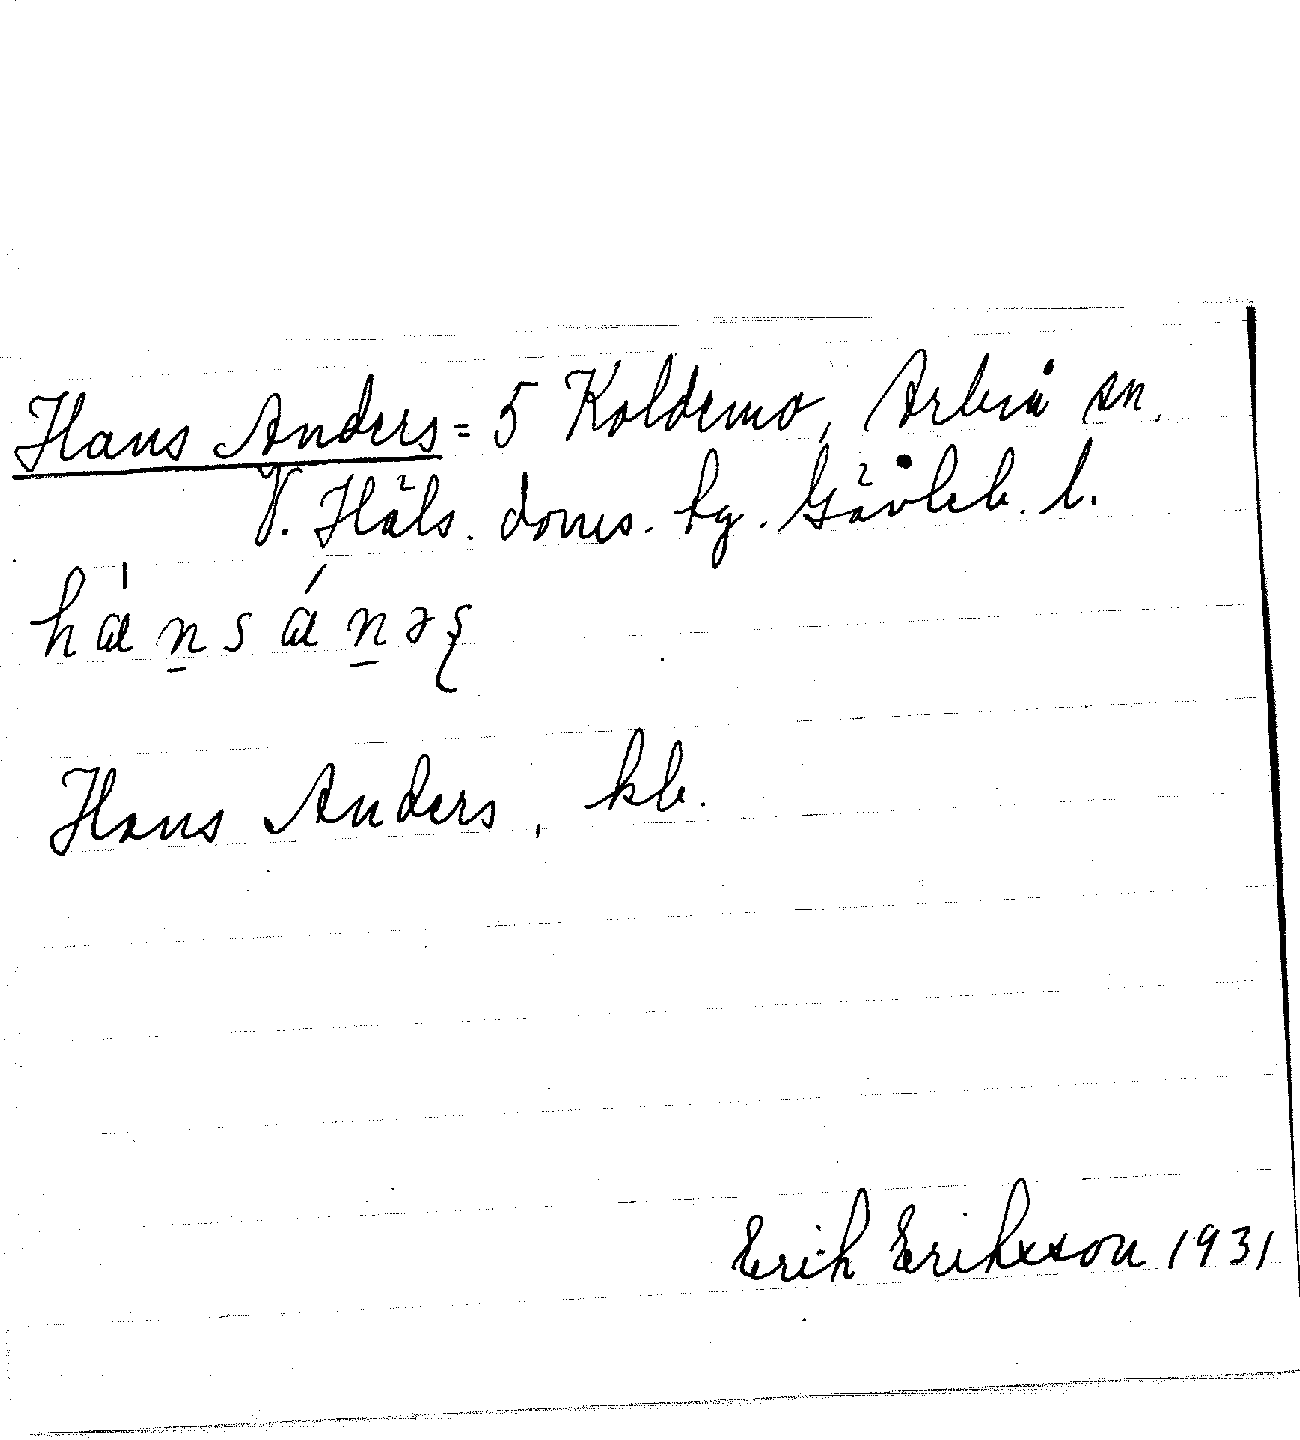 Hans Anders = 5 Koldemo, Arbrå sn.
V. Häls. doms. hg. Gävleb. l.
hàn̠sán̠əʂ
Hans Anders, kb.
Erik Eriksson 1931